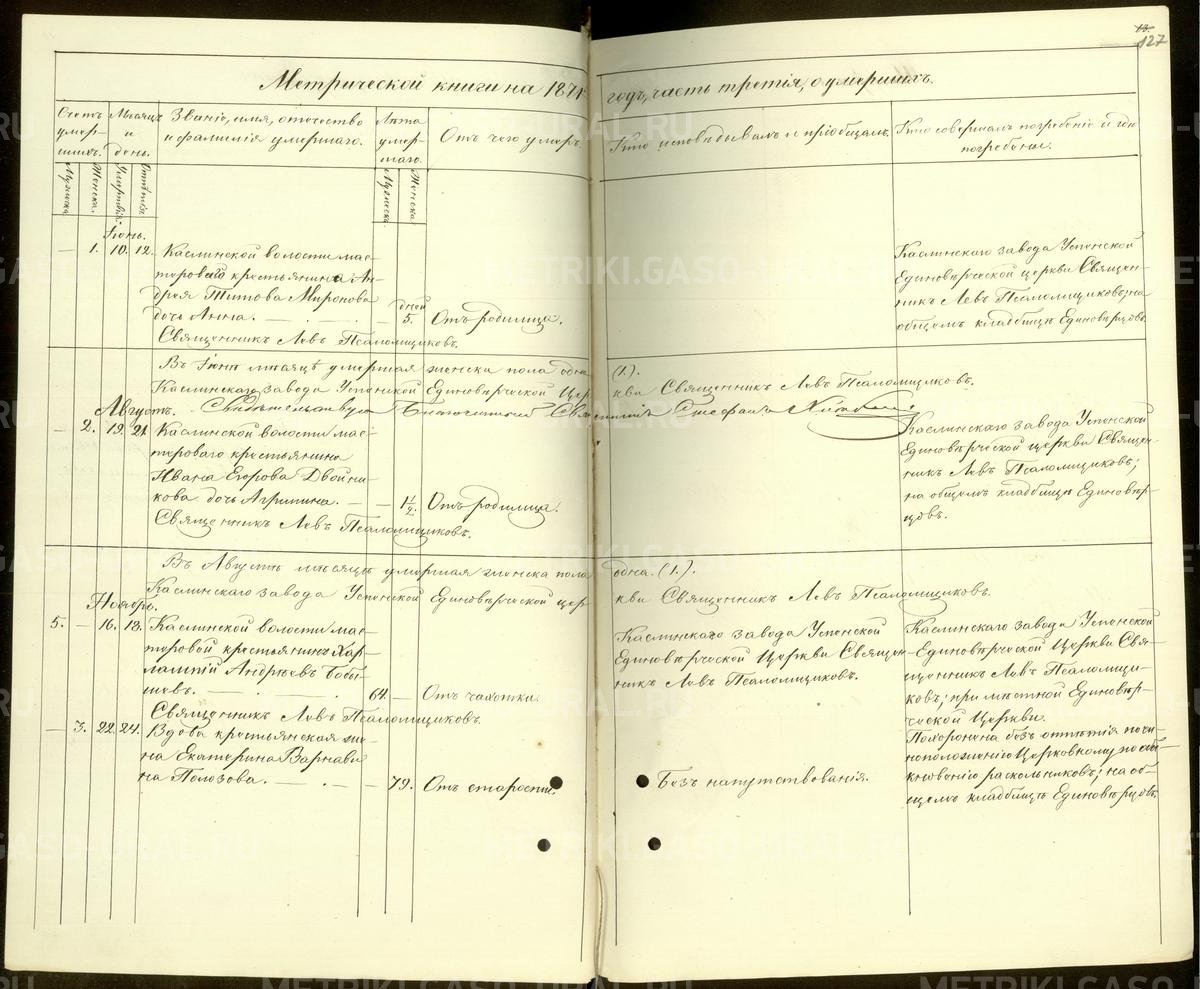 127
Метрической книги на 1871
годъ, часть третія, о умершихъ.
Счетъ умер-шихъ.
Мужска.
Женска.
Мѣсяцъ и день.
Смерти.
Званіе, имя, отчество
и фамилія умершаго.
Лѣта умер-шаго.
Мужска.
Женска.
Отъ чего умеръ.
Кто исповѣдывалъ и пріобщалъ.
Кто совершалъ погребеніе и гдѣ
погребены.
Іюнь.
— 1. 10. 12. Каслинской волости мас-
терового крестьянина Ан-
дрея Титова Миронова
дочь Анна. — — дней 5. Отъ родимца.
Священникъ Левъ Псаломщиковъ.
Каслинскаго завода Успенской
Единовѣрческой церкви Священ-
никъ Левъ Псаломщиковъ; на
общемъ кладбищѣ Единовѣрцовъ.
Въ Іюнѣ мѣсяцѣ умершая женска пола одна (1.).
Каслинскаго завода Успенской Единовѣрческой Цер
кви Священникъ Левъ Псаломщиковъ.
Свидѣтельствую Благочинный Священникъ Стефанъ
Августъ.
— 2. 19. 21. Каслинской волости мас-
терового крестьянина
Ивана Егорова Двойни-
кова дочь Агрипина. — — 1½. Отъ родимца.
Священникъ Левъ Псаломщиковъ.
Каслинскаго завода Успенской
Единовѣрческой церкви Священ-
никъ Левъ Псаломщиковъ;
на общемъ кладбищѣ Единовѣр-
цовъ.
Въ Августѣ мѣсяцѣ умершая женска пола одна. (1.).
Каслинскаго завода Успенской Единовѣрческой цер
кви Священникъ Левъ Псаломщиковъ.
Ноябрь.
5. — 16. 18. Каслинской волости мас-
теровой крестьянинъ Хар-
лампій Андрѣевъ Бобы-
шевъ. — 64. — Отъ чахотки.
Священникъ Левъ Псаломщиковъ.
Каслинскаго завода Успенской
Единовѣрческой Церкви Священ-
никъ Левъ Псаломщиковъ.
Каслинскаго завода Успенской
Единовѣрческой Церкви Свя-
щенникъ Левъ Псаломщи-
ковъ; при мѣстной Единовѣр-
ческой Церкви.
— 3. 22. 24. Вдова крестьянская же-
на Екатерина Варнави-
на Полозова. — — 79. Отъ старости.
Безъ напутствованія.
Похоронена безъ отпѣтія по чи-
ноположенію Церковному по обы-
кновенію раскольниковъ; на об-
щемъ кладбищѣ Единовѣрцовъ.
METRIKI.GASO-URAL.RU